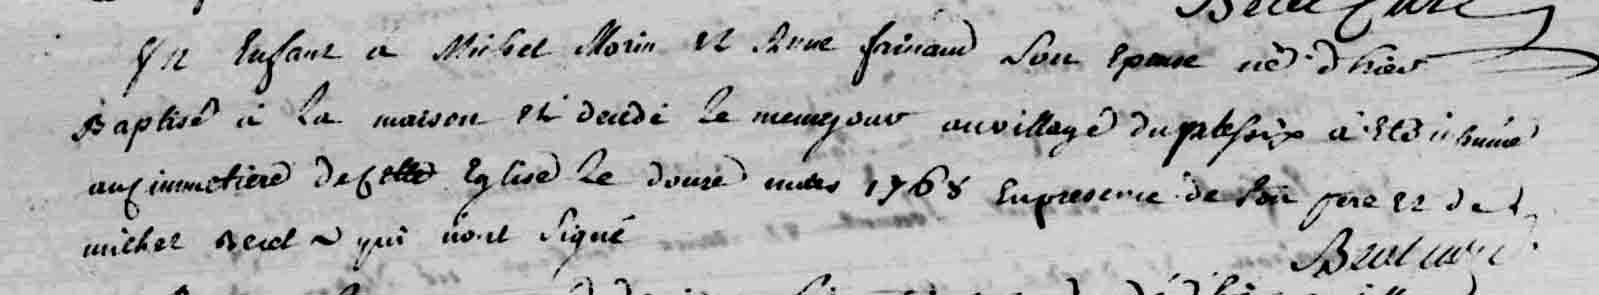 Un Enfant a Michel Morin et Anne son Epouse né d'hier
Baptisé à La maison et decedé Le meme jour au village du plessix a Eté inhumé
au cimmetiere de cette Eglise Le douze mars 1768 En presence de son pere et de
michel Berel qui n'ont signé